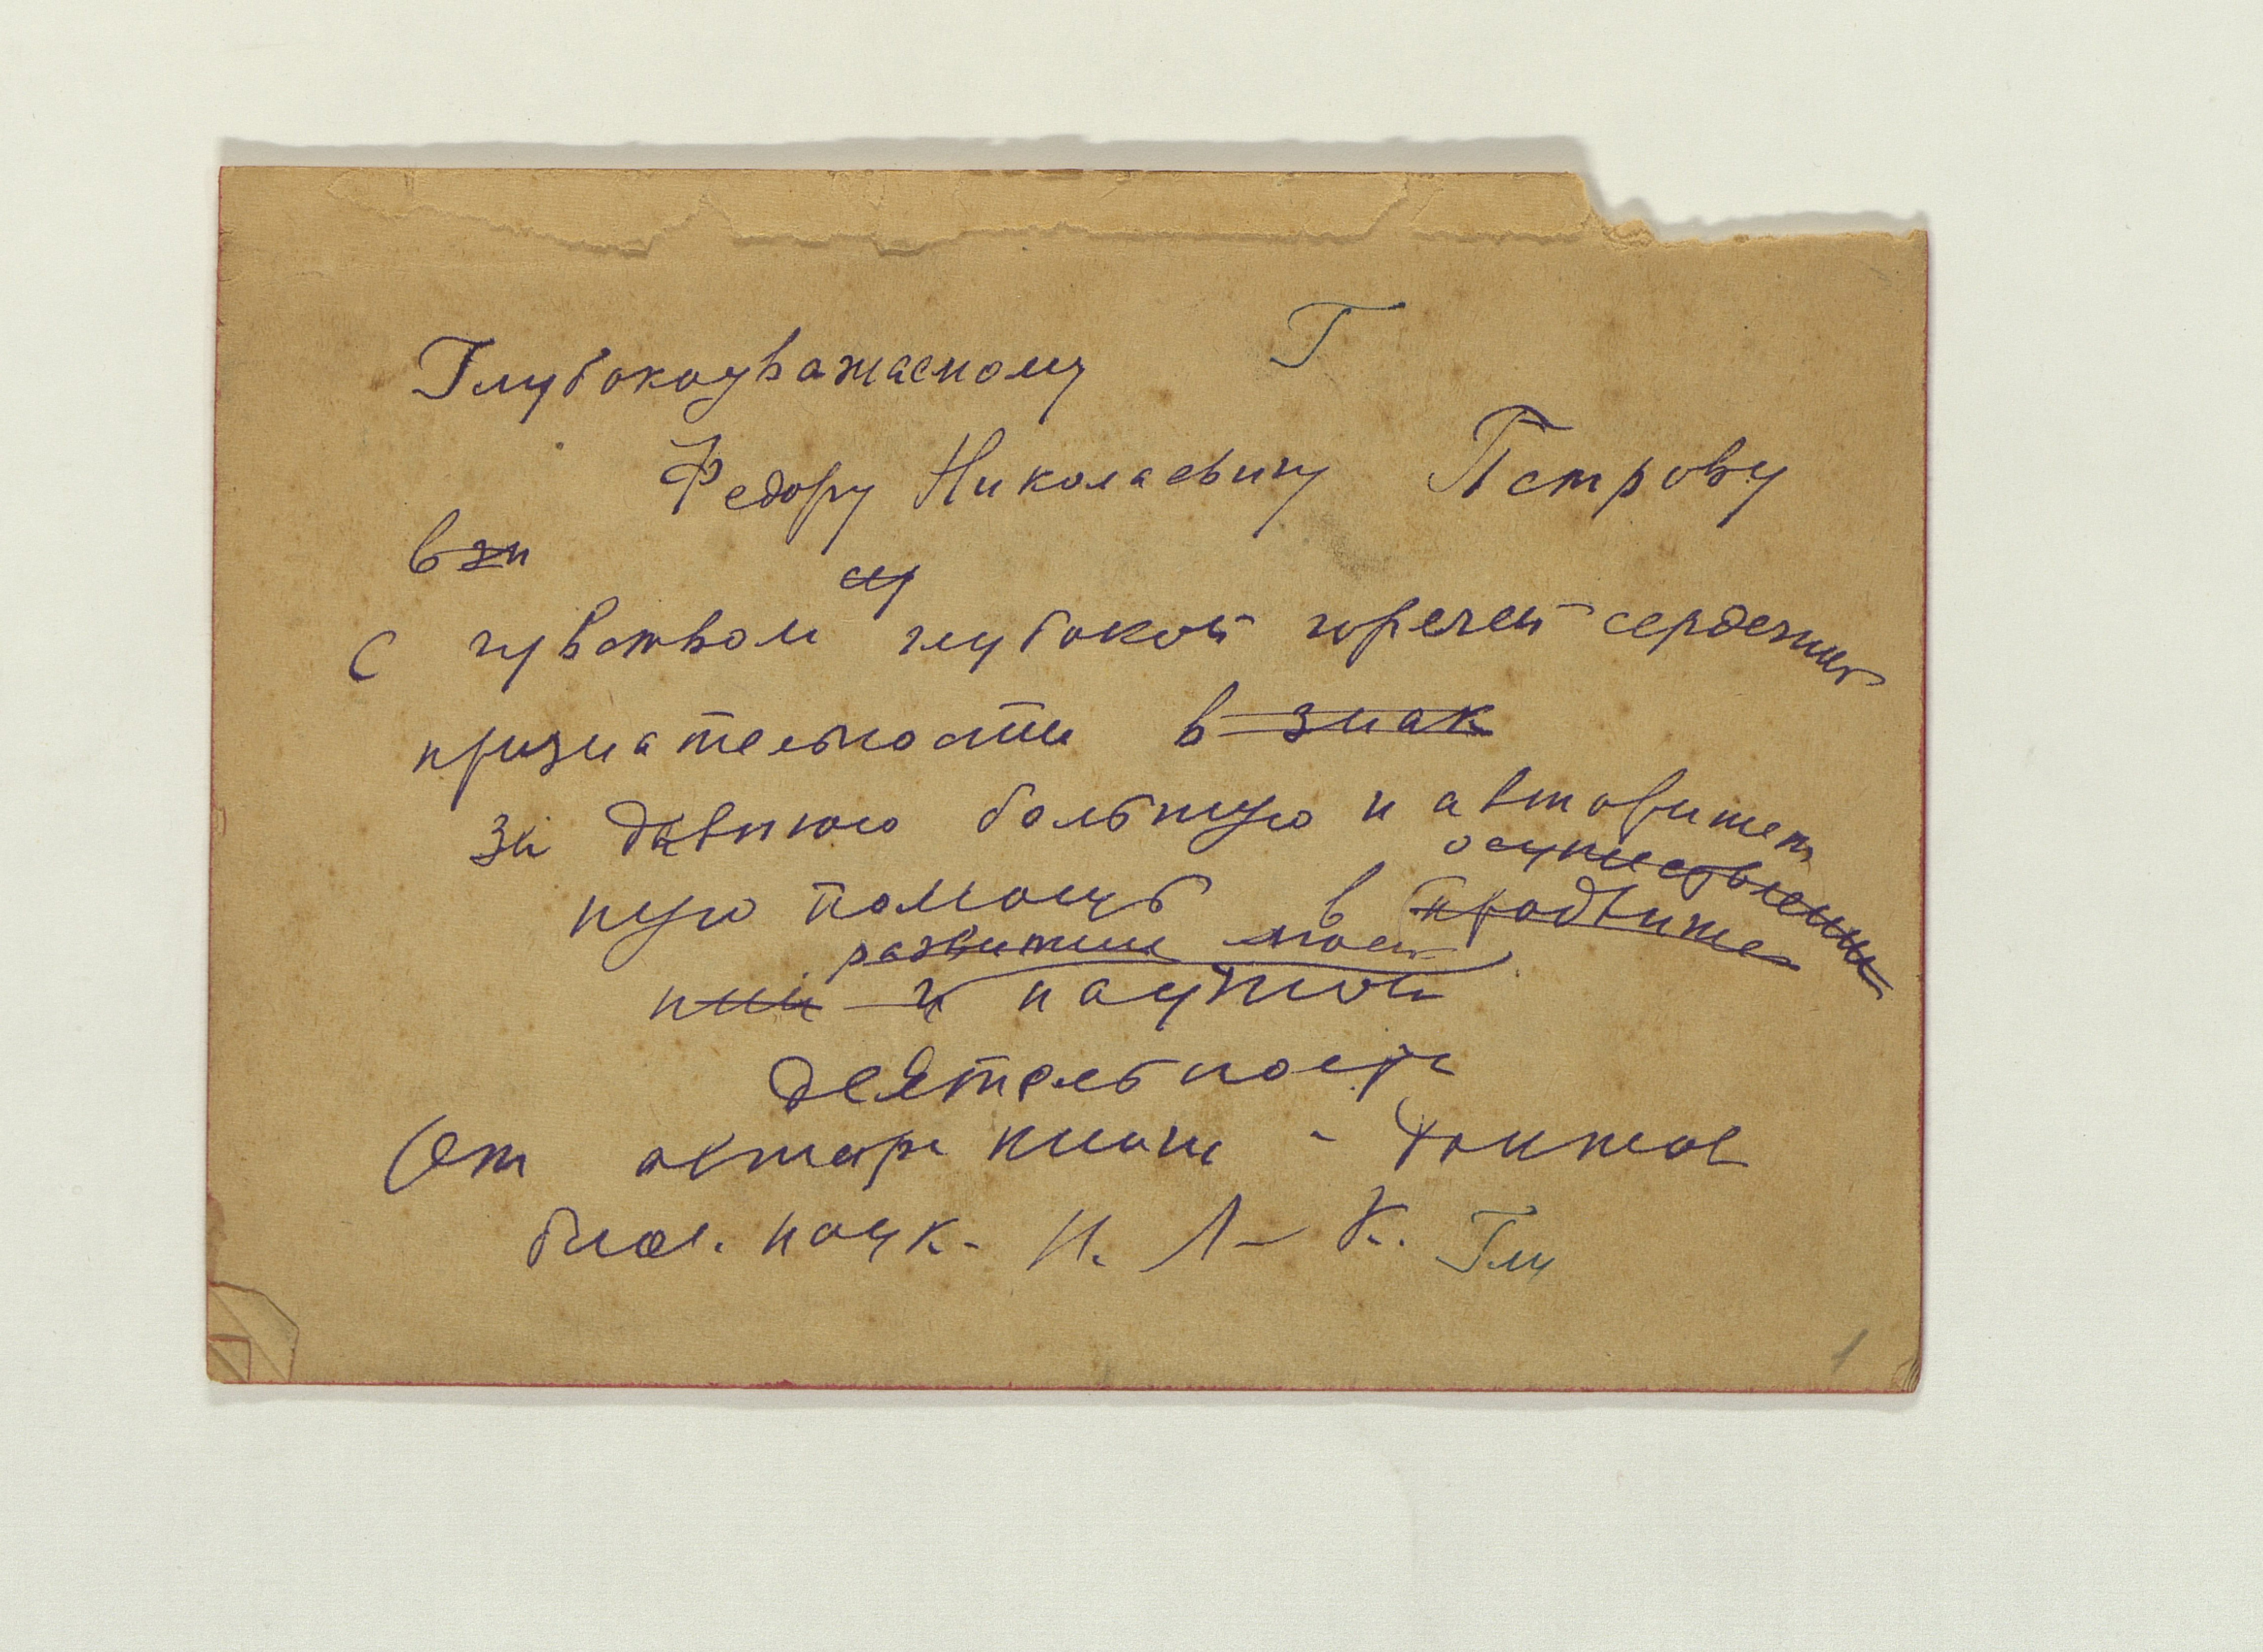 Г
Глубокоуважаемому
Федору Николаевичу Петрову
в зн
с чувством глубокой горячей сердечной
признательности в знак
за давнюю большую и авторитет
осуществлении
ную помощь в продвиже
развитии моей
нии и научной
деятельности
От автора книги - доктора
биол. наук. Н. Л-К. Глу
1